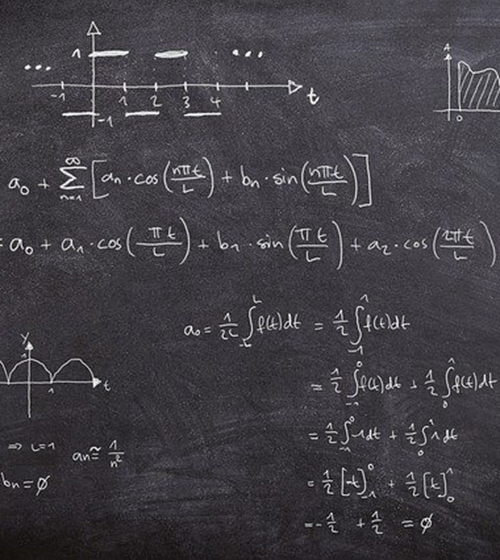 1
... ...
-1 1 2 3 4 t
-1
0
a₀ + ∑ₙ₌₁^∞ [aₙ·cos(nπt/L) + bₙ·sin(nπt/L)]
= a₀ + a₁·cos(πt/L) + b₁·sin(πt/L) + a₂·cos(2πt/L)
a₀ = 1/2L ∫₋L^L f(t)dt = 1/2 ∫₋₁^1 f(t)dt
y
= 1/2 ∫₋₁^0 f(t)dt + 1/2 ∫₀^1 f(t)dt
1 t
= 1/2 ∫₋₁^0 -1dt + 1/2 ∫₀^1 1dt
⇒ L=1 an≅ 1/n²
= 1/2 [-t]₋₁^0 + 1/2 [t]₀^1
bn=∅
= -1/2 + 1/2 = ∅